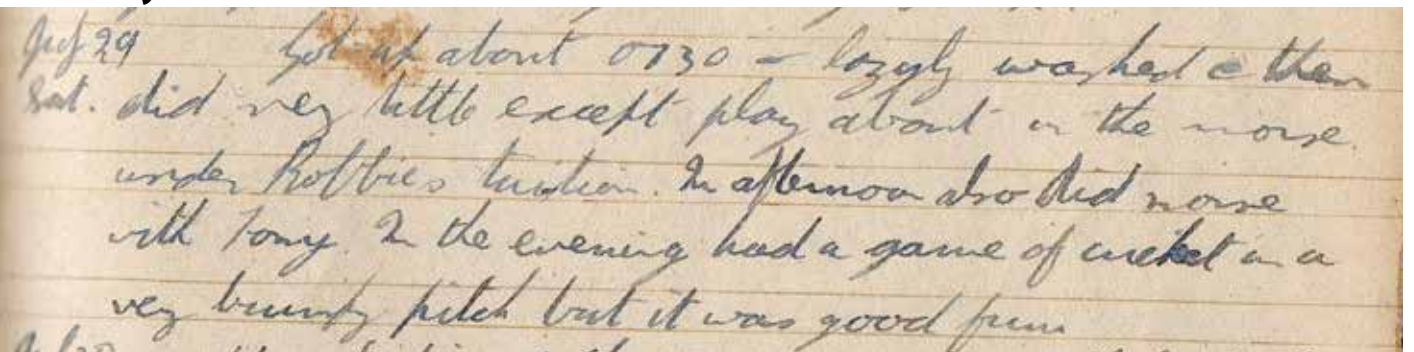 July 29 Got up about 0730 - lazyly washed & then
Sat. did very little except play about in the morse
under Robbies tuition. In afternoon also did morse
with Tony. In the evening had a game of cricket on a
very bumpy pitch but it was good fun